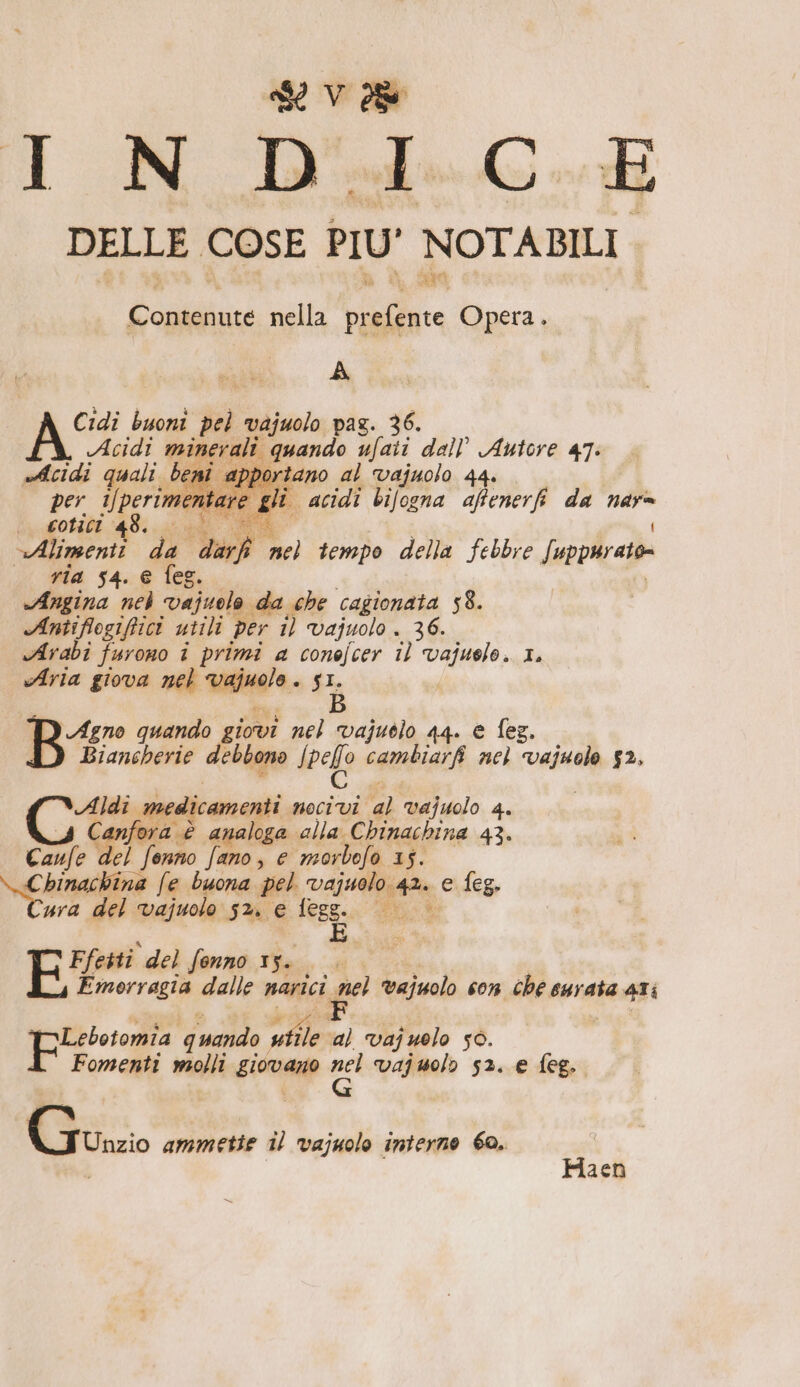 V
INDICE
DELLE COSE PIU' NOTABILI
Contenute nella preſente Opera.
A
ACidi buoni pel vajuolo pag. 36.
Acidi minerali quando uſati dall' Autore 47.
Acidi quali beni apportano al vajuolo 44.
per iſperimentare gli acidi biſogna aſtenerſi da nar-
cotici 48.
Alimenti da darſi nel tempo della febbre ſuppurato-
ria 54. e ſeg.
Angina nel vajuolo da che cagionata 58.
Antiflogiſtici utili per il vajuolo. 36.
Arabi furono i primi a conoſcer il vajuolo. 1.
Aria giova nel vajuolo. 51.
B
BAgno quando giovi nel vajuolo 44. e ſeg.
Biancherie debbono ſpeſſo cambiarſi nel vajuolo 52.
C
CAldi medicamenti nocivi al vajuolo 4.
Canfora è analoga alla Chinachina 43.
Cauſe del ſonno ſano, e morboſo 15.
Chinachina ſe buona pel vajuolo 42. e ſeg.
Cura del vajuolo 52. e ſegg.
E
EFfetti del ſonno 15.
Emorragia dalle narici nel vajuolo con che curata 41.
F
FLebotomia quando utile al vajuolo 50.
Fomenti molli giovano nel vajuolo 52. e ſeg.
G
GUnzio ammette il vajuolo interno 60.
Haen